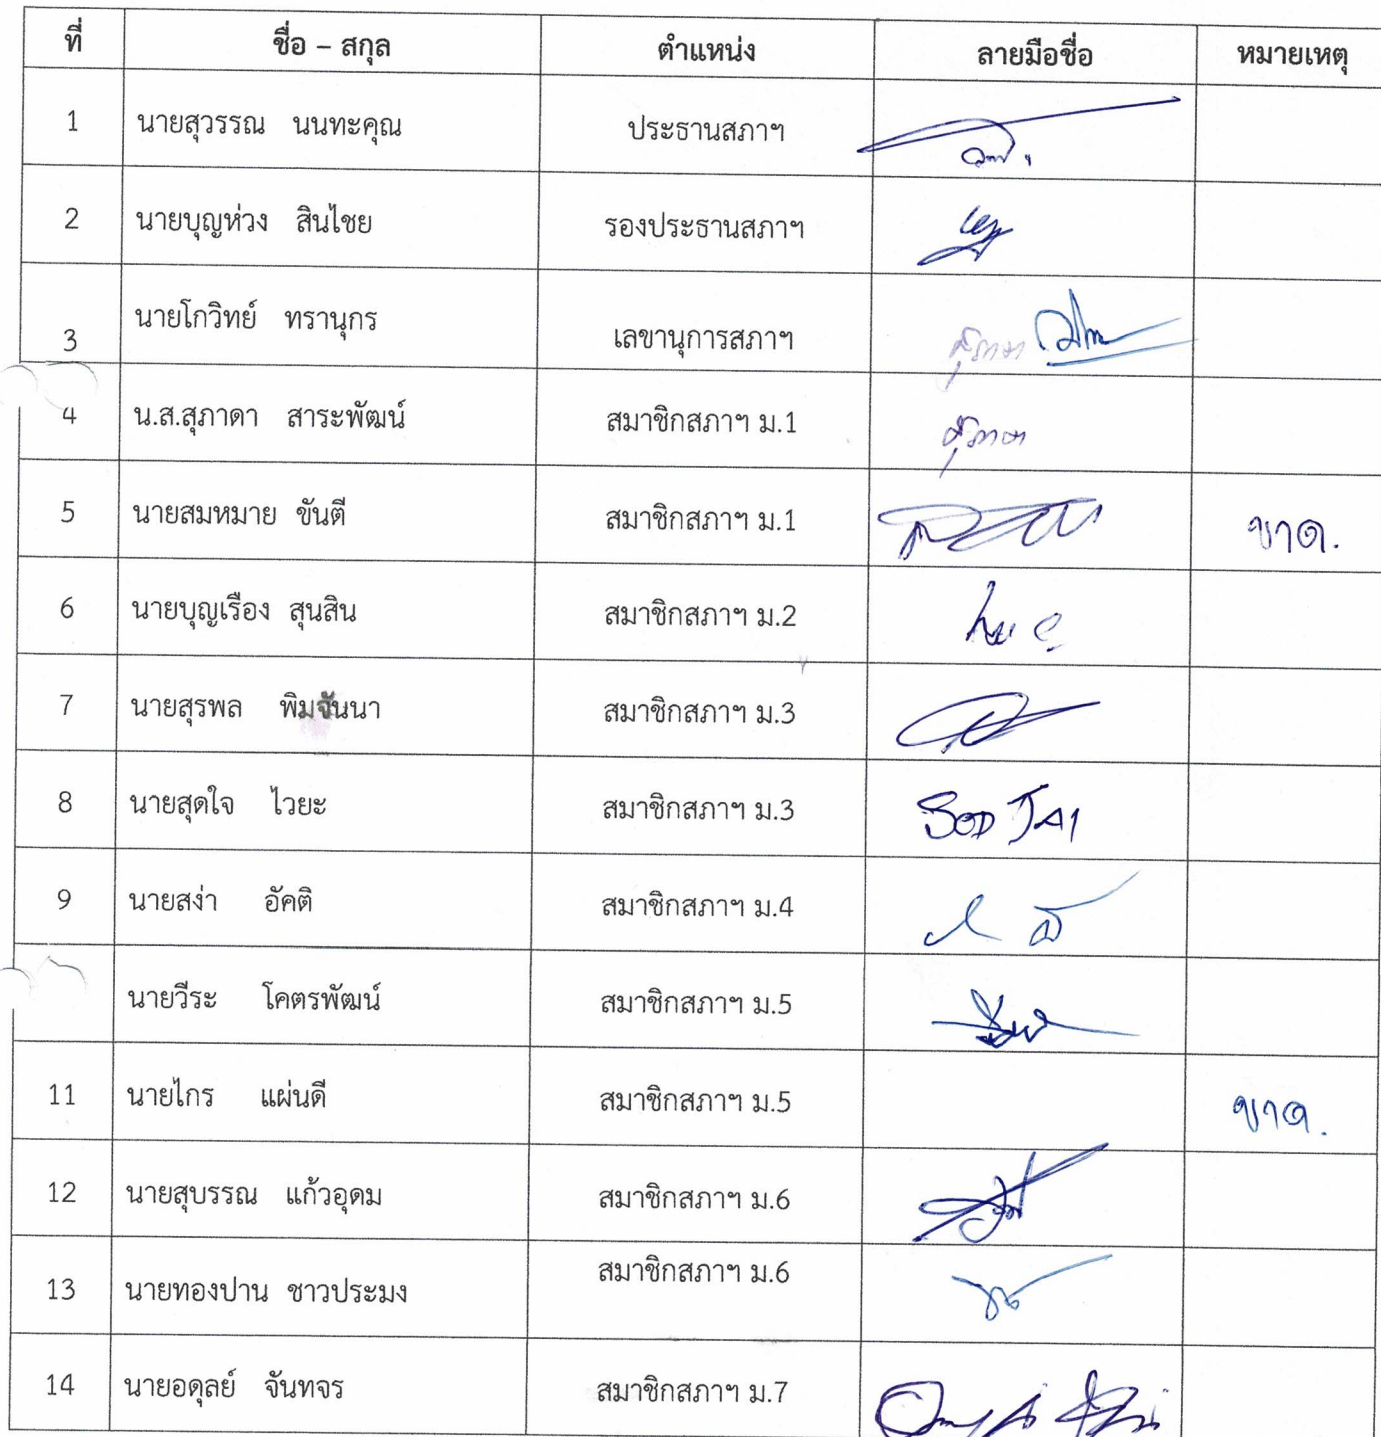 ที่ ชื่อ – สกุล ตำแหน่ง ลายมือชื่อ หมายเหตุ
1 นายสุวรรณ นนทะคุณ ประธานสภาฯ
2 นายบุญห่วง สินไชย รองประธานสภาฯ
3 นายโกวิทย์ ทรานุกร เลขานุการสภาฯ
4 น.ส.สุภาดา สาระพัฒน์ สมาชิกสภาฯ ม.1 สุภาดา
5 นายสมหมาย ขันตี สมาชิกสภาฯ ม.1 ขาด.
6 นายบุญเรือง สุนสิน สมาชิกสภาฯ ม.2
7 นายสุรพล พิมจันนา สมาชิกสภาฯ ม.3
8 นายสุดใจ ไวยะ สมาชิกสภาฯ ม.3 SOD JAI
9 นายสง่า อัคติ สมาชิกสภาฯ ม.4
นายวีระ โคตรพัฒน์ สมาชิกสภาฯ ม.5
11 นายไกร แผ่นดี สมาชิกสภาฯ ม.5 ขาด.
12 นายสุบรรณ แก้วอุดม สมาชิกสภาฯ ม.6
13 นายทองปาน ชาวประมง สมาชิกสภาฯ ม.6
14 นายอดุลย์ จันทจร สมาชิกสภาฯ ม.7